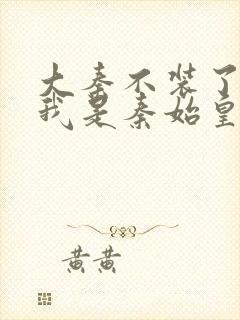 大秦不装了
我是秦始皇
黄黄